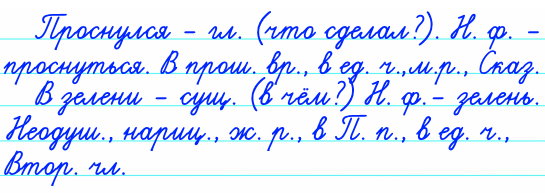 Проснулся – гл. (что сделал?). Н. ф. –
проснуться. В прош. вр., в ед. ч.,м.р., Сказ.
В зелени – сущ. (в чём?) Н. ф.– зелень.
Неодуш., нариц., ж. р., в П. п., в ед. ч.,
Втор. чл.